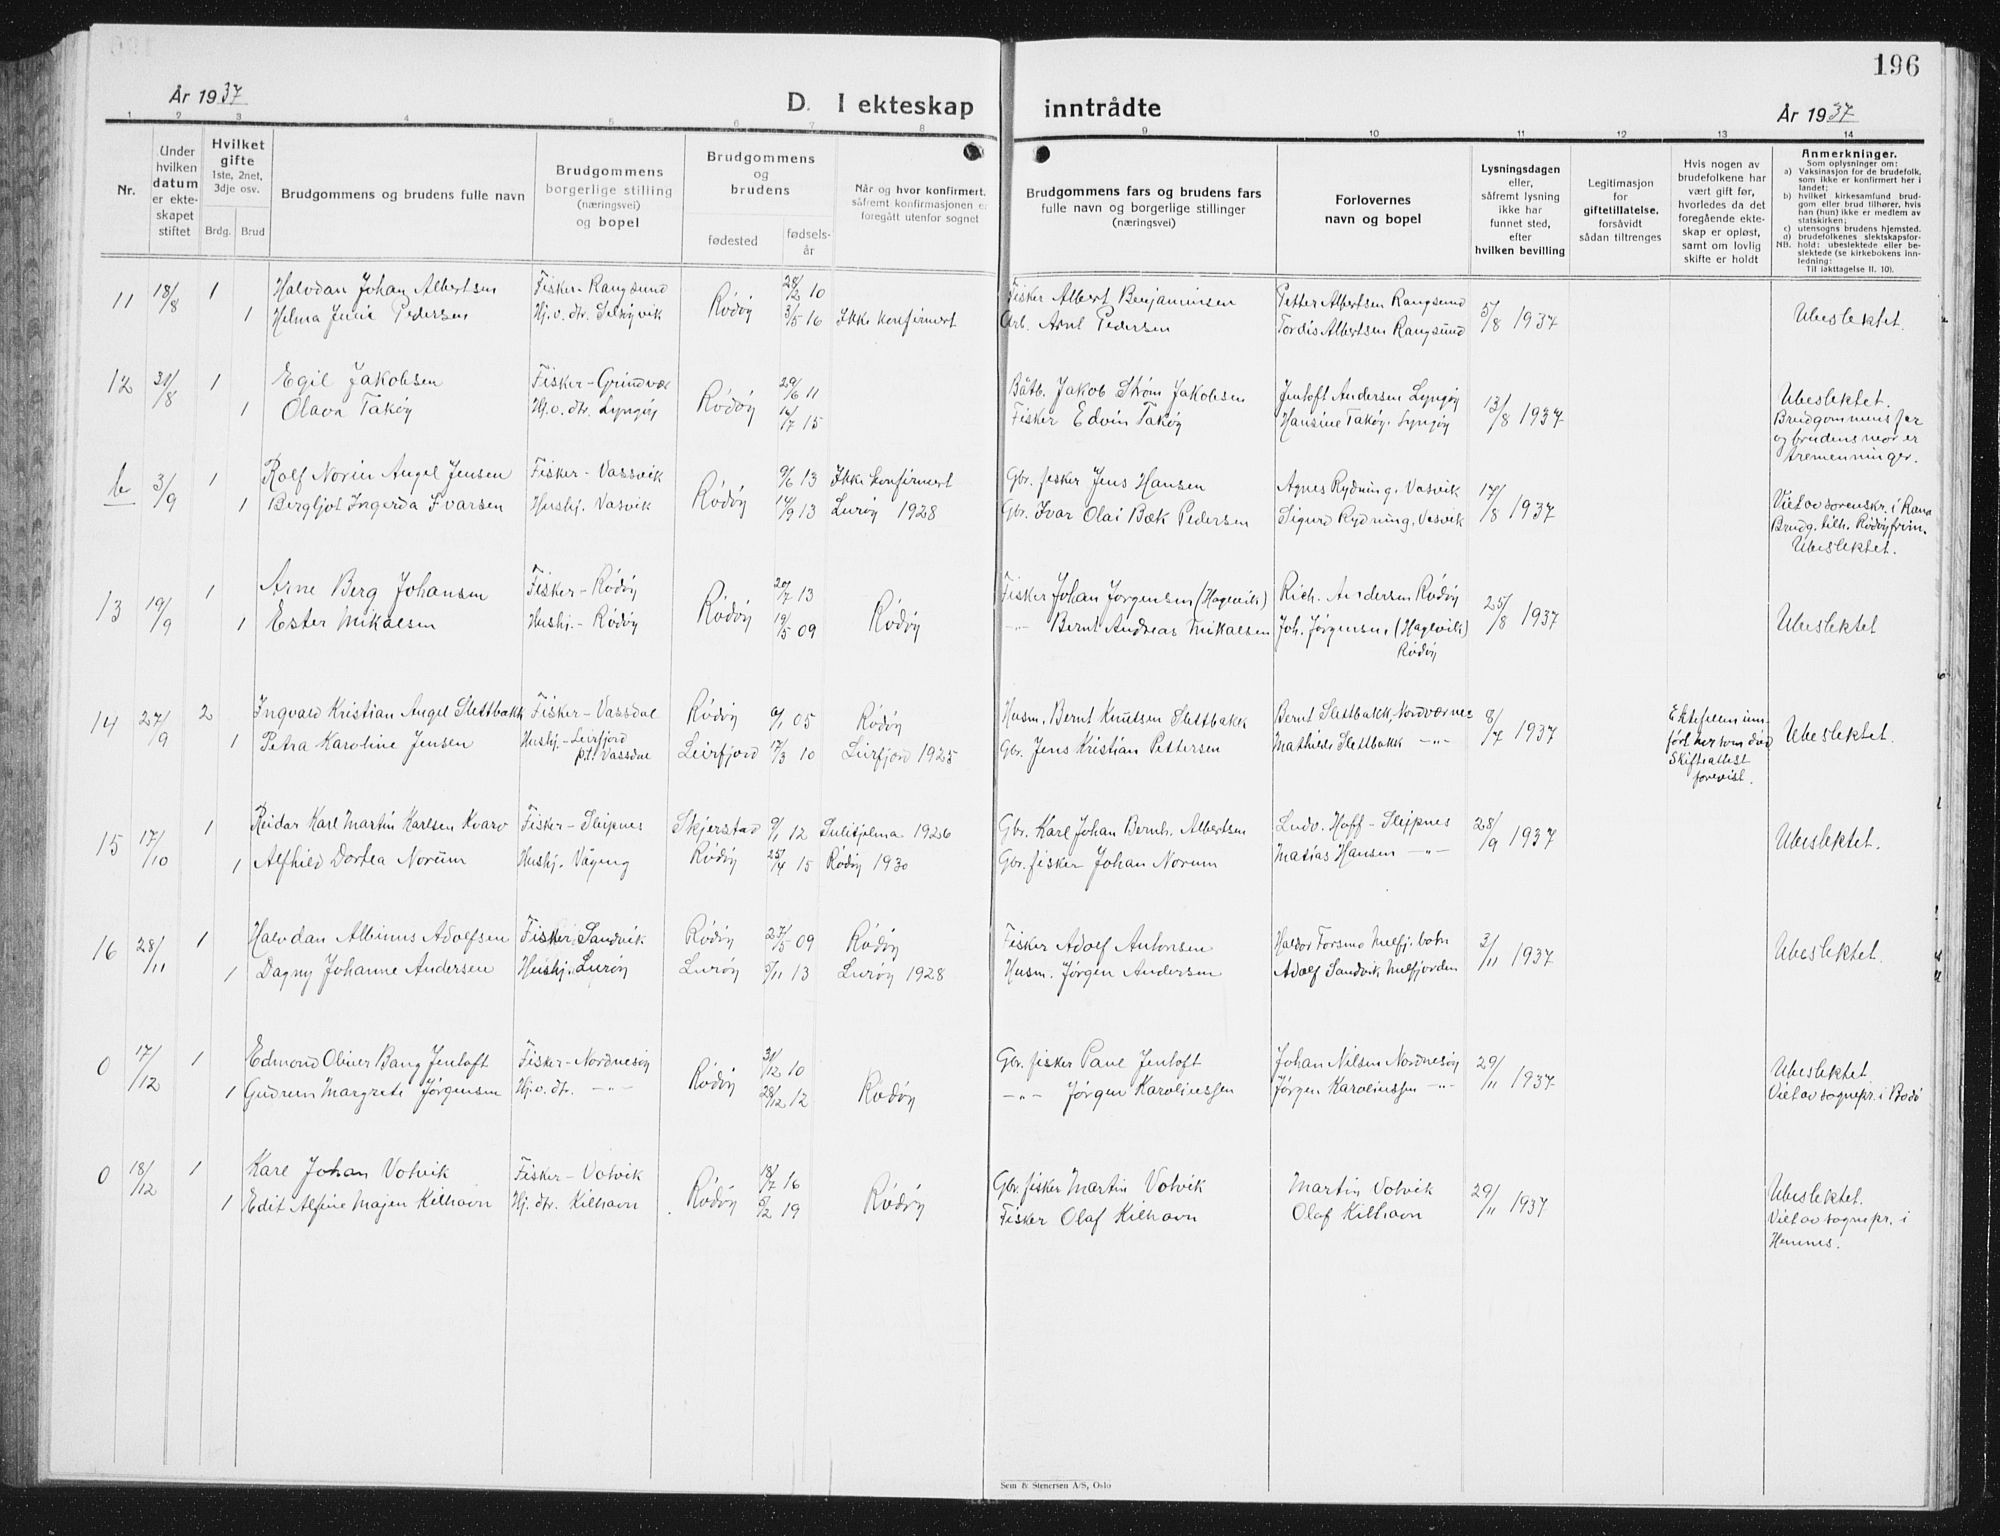 196
År 1937
D. I ekteskap inntrådte
År 1937
1 2 3 4 5 6 7 8 9 10 11 12 13 14
Nr.
Under hvilken datum er ekteskapet stiftet
Hvilket gifte 1ste, 2net, 3dje osv.
Brdg. Brud
Brudgommens og brudens fulle navn
Brudgommens borgerlige stilling (næringsvei) og bopel
Brudgommens og brudens
fødested
fødselsår
Når og hvor konfirmert, såfremt konfirmasjonen er foregått utenfor sognet
Brudgommens fars og brudens fars fulle navn og borgerlige stillinger (næringsvei)
Forlovernes navn og bopel
Lysningsdagen eller, såfremt lysning ikke har funnet sted, efter hvilken bevilling
Legitimasjon for giftetillatelse, forsåvidt sådan tiltrenges
Hvis nogen av brudefolkene har vært gift før, hvorledes da det foregående ekteskap er opløst, samt om lovlig skifte er holdt
Anmerkninger.
Som oplysninger om:
a) Vaksinasjon for de brudefolk, som ikke er konfirmert her i landet;
b) hvilket kirkesamfund brudgom eller brud tilhører, hvis han (hun) ikke er medlem av statskirken;
c) utensogns brudens hjemsted.
d) brudefolkenes slektskapsforhold: ubeslektede eller beslektede (se kirkebokens innledning:
NB.
Til iakttagelse II. 10).
11 18/8 1 Halvdan Johan Albertsen Fisker - Rangsund Rødøy 28/2 10 Fisker Albert Benjaminsen Petter Albertsen Rangsund 5/8 1937 Ubeslektet.
1 Helma Julie Pedersen Hj.v.dtr. Selsøyvik 3/5 16 Ikke konfirmert Arb. Arnt Pedersen Tordis Albertsen Rangsund
12 31/8 1 Egil Jakobsen Fisker - Grindvær Rødøy 29/6 11 Båtb. Jakob Strøm Jakobsen Jentoft Andersen Lyngøy 13/8 1937 Ubeslektet.
1 Olava Takøy Hj.v.dtr. Lyngøy 14/7 15 Fisker Edvin Takøy Hansine Takøy, Lyngøy Brudgommens far
og brudens mor er
tremenninger.
b 3/9 1 Rolf Norin Angel Jensen Fisker - Vassvik Rødøy 9/6 13 Ikke konfirmert Gbr. fisker Jens Hansen Agnes Rydning, Vasvik 17/8 1937
1 Bergljot Ingerda Ivarsen Hushj. Vasvik 14/9 13 Lurøy 1928 Gbr. Ivar Olai Bæk Pedersen Sigurd Rydning, Vasvik Viet av sorenskr. i Rana
Brudg. tilh. Rødøy frim.
Ubeslektet.
13 19/9 1 Arne Berg Johansen Fisker - Rødøy Rødøy 20/7 13 Rødøy Fisker Johan Jørgensen (Hagevik) Rich. Andersen Rødøy 25/8 1937 Ubeslektet
1 Ester Mikalsen Hushj. - Rødøy 19/5 09 -"- Bernt Andreas Mikalsen Joh. Jørgensen, (Hagevik)
Rødøy
14 27/9 2 Ingvald Kristian Angel Slettbakk Fisker - Vassdal Rødøy 6/1 05 Rødøy Husm. Bernt Knutsen Slettbakk Bernt Slettbakk - Nordværnes 8/7 1937 Ektefellen inn- Ubeslektet.
1 Petra Karoline Jensen Hushj. - Leirfjord Leirfjord 17/3 10 Leirfjord 1925 Gbr. Jens Kristian Pettersen Mathilde Slettbakk -"- ført her som død
p.t. Vassdal Skifteattest
forevist.
15 17/10 1 Reidar Karl Martin Karlsen Kvarv Fisker - Sleipnes Skjerstad 9/1 12 Sulitjelma 1926 Gbr. Karl Johan Bernh. Albertsen Ludv. Hoff - Sleipnes 28/9 1937 Ubeslektet.
1 Alfhild Dortea Norum Hushj. Våging Rødøy 25/4 15 Rødøy 1930 Gbr. fisker Johan Norum Matias Hansen -"-
16 28/11 1 Halvdan Albinus Adolfsen Fisker, Sandvik Rødøy 27/5 09 Rødøy Fisker Adolf Antonsen Haldor Forsmo Melfj. botn 3/11 1937 Ubeslektet.
1 Dagny Johanne Andersen Hushj. Lurøy Lurøy 5/11 13 Lurøy 1928 Husm. Jørgen Andersen Adolf Sandvik Melfjorden
0 17/12 1 Edmond Oliver Bang Jentoft Fisker - Nordnesøy Rødøy 31/12 10 Rødøy Gbr. fisker Paul Jentoft Johan Nilsen Nordnesøy 29/11 1937 Ubeslektet
1 Gudrun Margrete Jørgensen Hj.v.dtr. -"- 28/12 12 -"- Jørgen Karoliussen Jørgen Karoliussen -"- Viet av sognepr. i Bodø
0 18/12 1 Karl Johan Votvik Fisker - Votvik Rødøy 18/7 16 Rødøy Gbr. fisker Martin Votvik Martin Votvik 29/11 1937 Ubeslektet.
1 Edit Alfine Majen Kilhavn Hj. dtr. Kilhavn 5/2 19 Fisker Olaf Kilhavn Olaf Kilhavn Viet av sognepr. i
Hemnes.
Sem & Stenersen A/S, Oslo